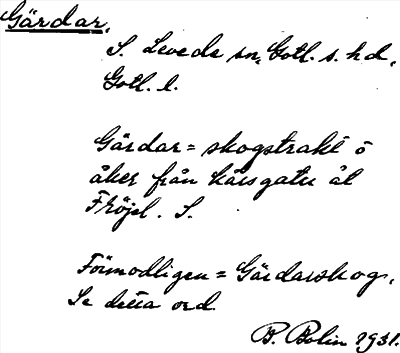 Gärdar.
S. Levede sn, Gotl. s. hd,
Gotl. l.
Gärdar = skogstrakt ö
åker från Kärsgatu åt
Fröjel. S.
Förmodligen = Gärdarskog.
Se detta ord.
B. Bolin 1931.